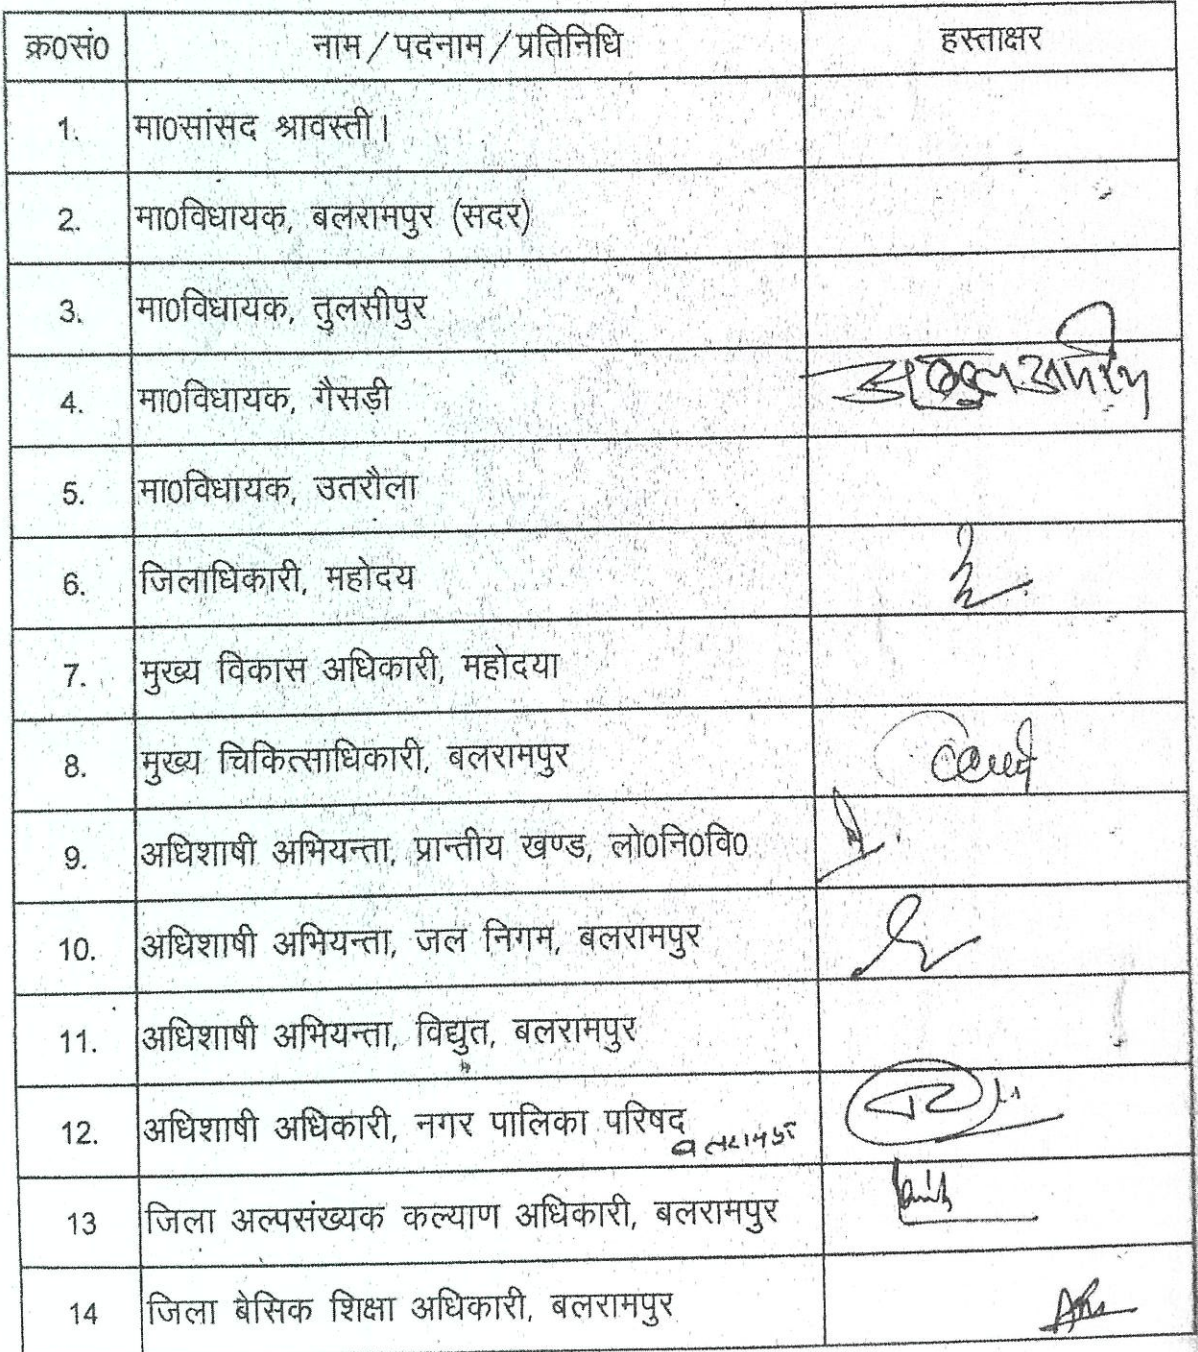 क्र0सं0 नाम / पदनाम / प्रतिनिधि हस्ताक्षर
1. मा0सांसद श्रावस्ती।
2. मा0विधायक, बलरामपुर (सदर)
3. मा0विधायक, तुलसीपुर
4. मा0विधायक, गैसड़ी
5. मा0विधायक, उतरौला
6. जिलाधिकारी, महोदय
7. मुख्य विकास अधिकारी, महोदया
8. मुख्य चिकित्साधिकारी, बलरामपुर
9. अधिशाषी अभियन्ता, प्रान्तीय खण्ड, लो0नि0वि0
10. अधिशाषी अभियन्ता, जल निगम, बलरामपुर
11. अधिशाषी अभियन्ता, विद्युत, बलरामपुर
12. अधिशाषी अधिकारी, नगर पालिका परिषद
बलरामपुर
13 जिला अल्पसंख्यक कल्याण अधिकारी, बलरामपुर
14 जिला बेसिक शिक्षा अधिकारी, बलरामपुर